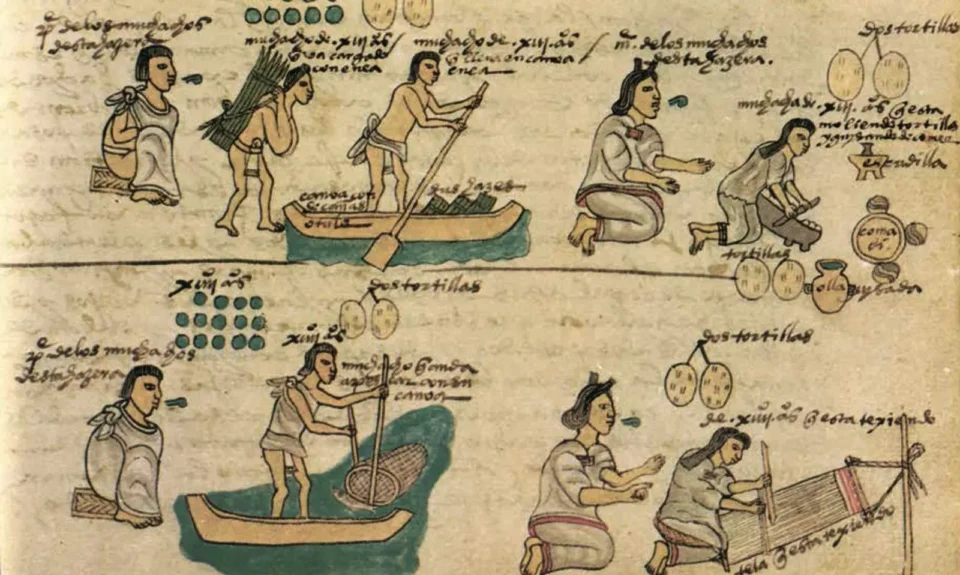 pᵉ de los muchachos
desta hazera
muchacho de .xiii. aᵒs
q̃ va cargado
con enea
muchacho de .xiii. aᵒs
q̃ lleva en canoa
enea
mᵉ. de los muchachos
desta hazera.
dos tortillas
muchacha de .xiii. aᵒs q̃ esta
moliendo tortillas
escudilla
canoa con
dos hazes
coma
tortillas
olla
xiiii aᵒs
dos tortillas
pᵉ de los muchachos
desta hazera
xiiii aᵒs
muchacho q̃ anda
canoa
dos tortillas
de .xiiii. aᵒs q̃ esta texiendo
tela q̃ esta texiendo